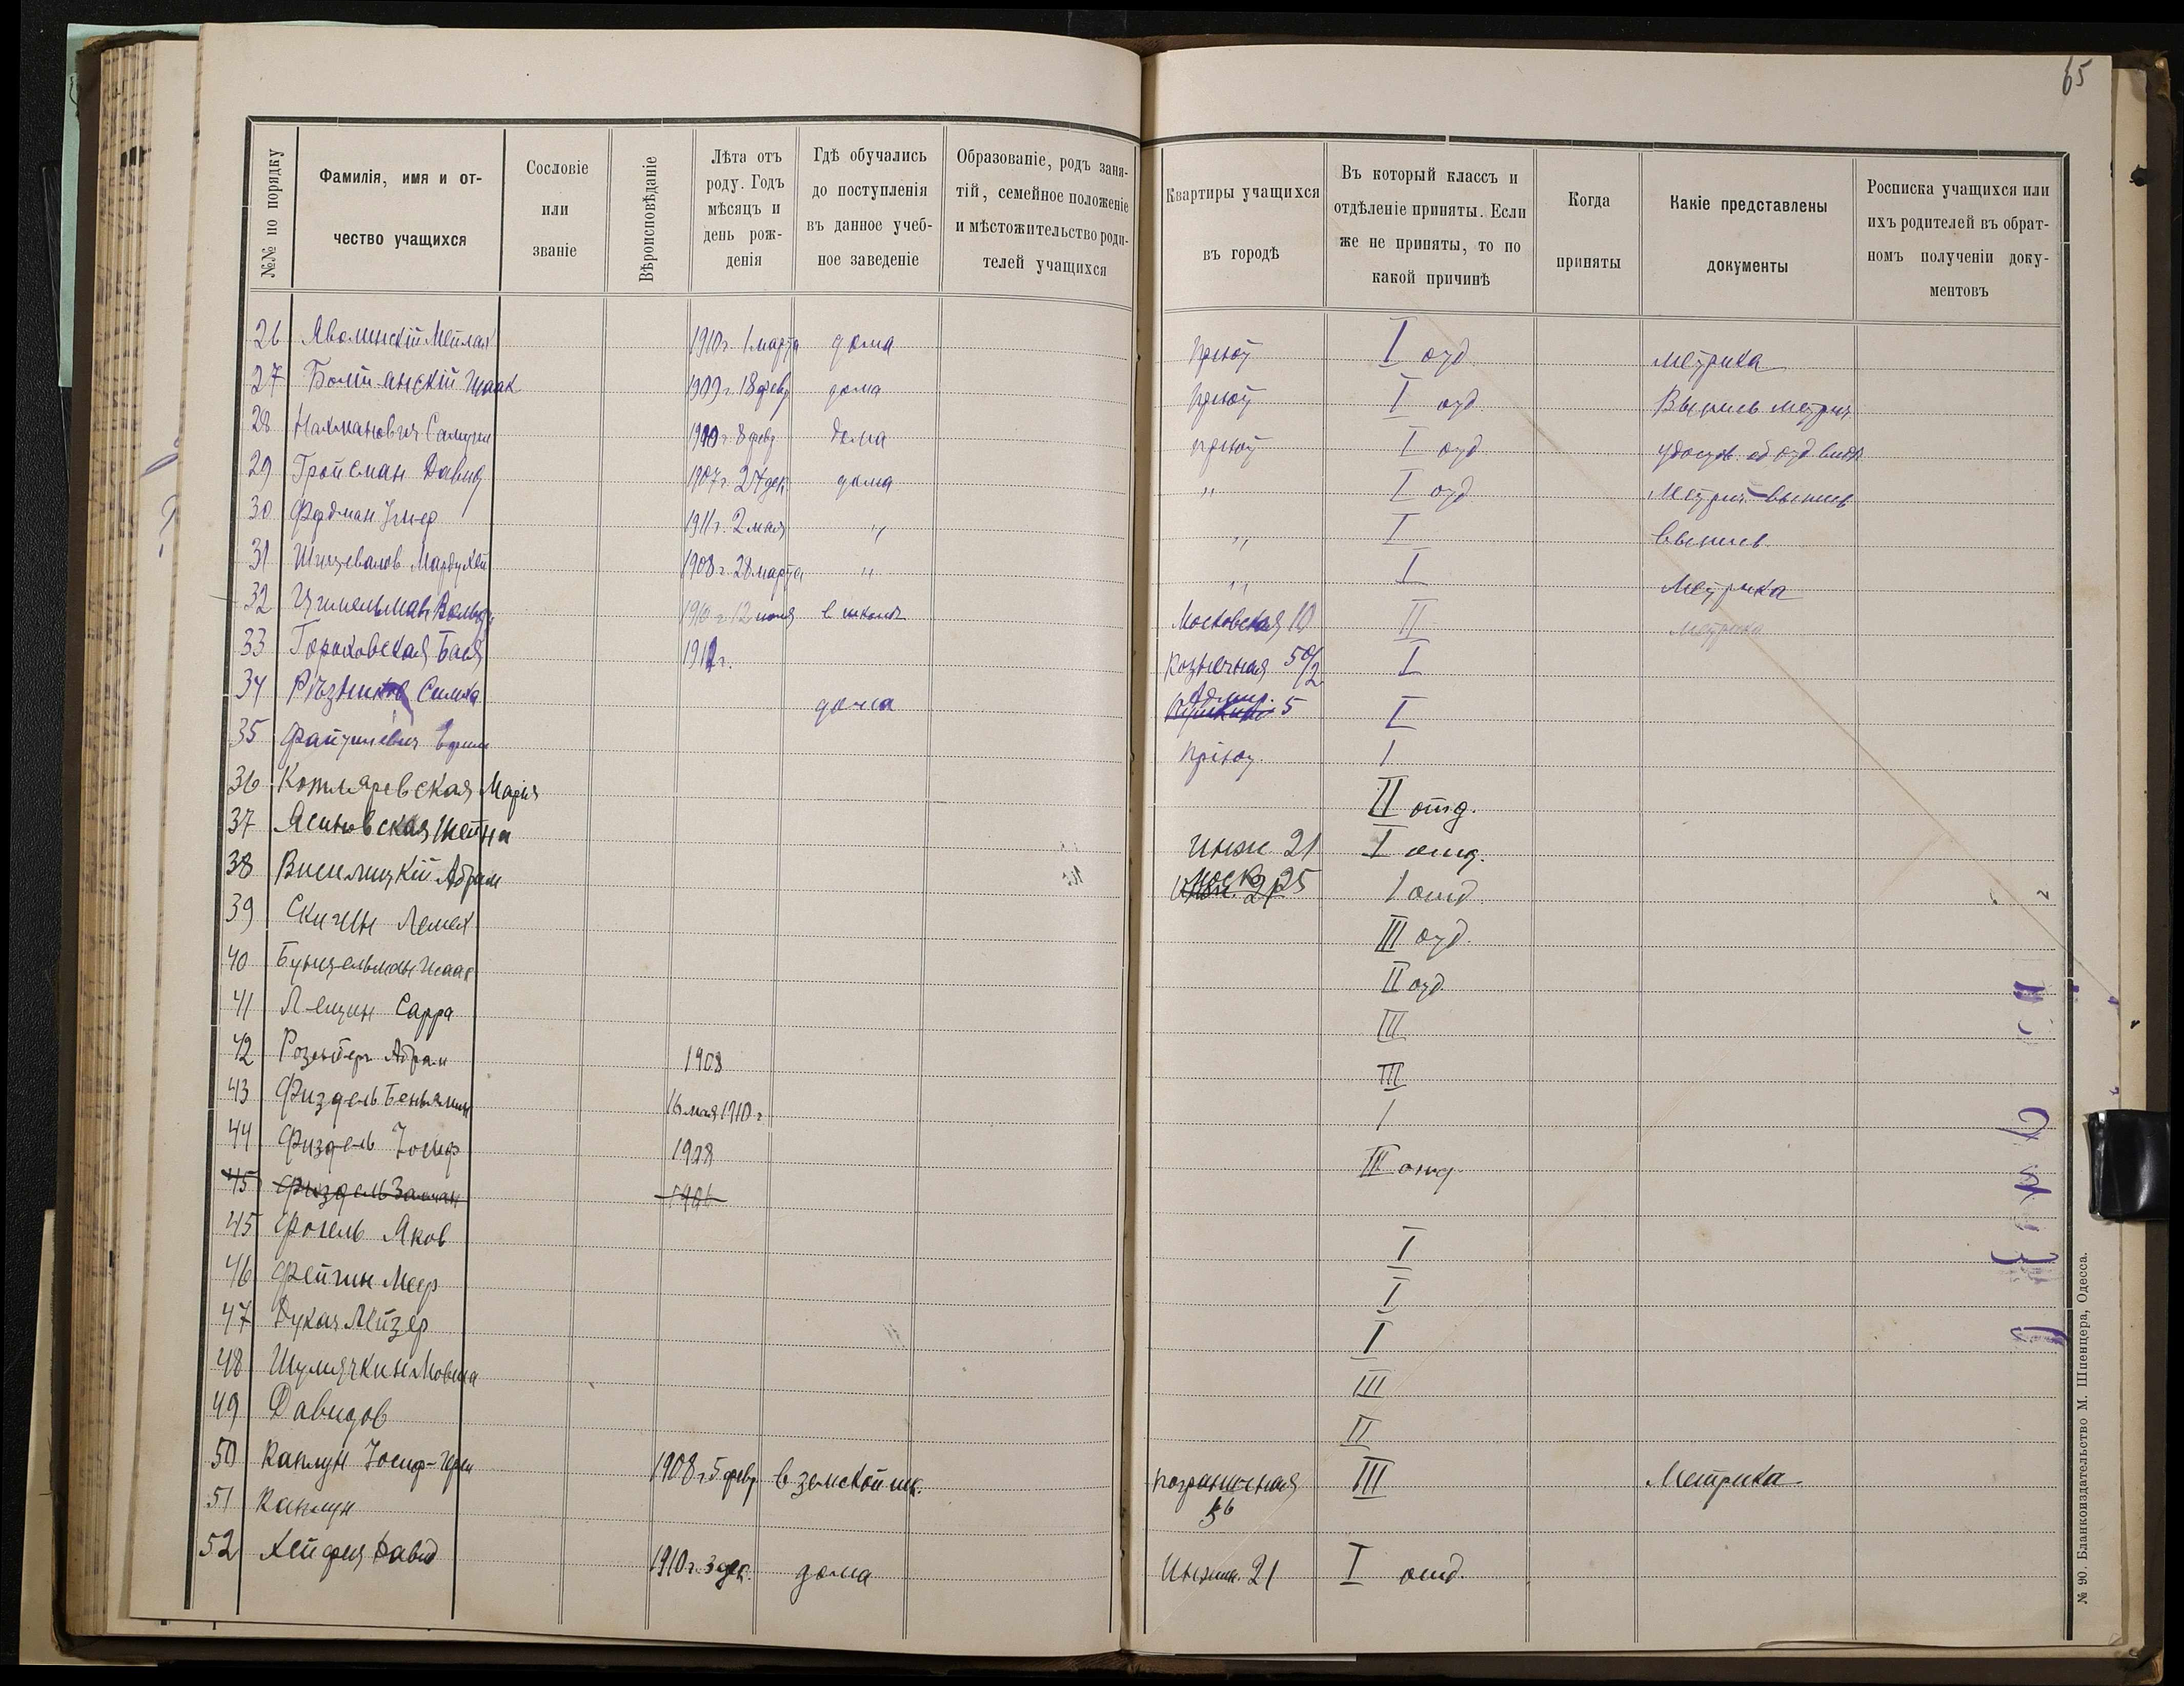 65
№№ по порядку
Фамилія, имя и от-
чество учащихся
Сословіе
или
званіе
Вѣроисповѣданіе
Лѣта отъ
роду. Годъ
мѣсяцъ и
день рож-
денія
Гдѣ обучались
до поступленія
въ данное учеб-
ное заведеніе
Образованіе, родъ заня-
тій, семейное положеніе
и мѣстожительство роди-
телей учащихся
Квартиры учащихся
въ городѣ
Въ который классъ и
отдѣленіе приняты. Если
же не приняты, то по
какой причинѣ
Когда
приняты
Какіе представлены
документы
Росписка учащихся или
ихъ родителей въ обрат-
номъ полученіи доку-
ментовъ
26 Яволинскій Мейлах 1910 г. 1 марта дома Приют I отд. метрика
27 Исаак 1909 г. 18 февр дома Приют I отд Выпись метрич.
28 Нахманович Самуил 8 февр дома приют I отд
29 Гройсман Давид 1907 г. 24 дек дома " I отд Метрич. выпись
30 Фердман 1911 г. 2 мая " " I выпись
31 Мардухай 1908 г. 28 марта " " I Метрика
32 Цимельман 1910 г 12 июля в школе Московская 10 II метрика
33 Гороховская Бася I
34 Симха дома Адмир. 5 I
35 приют. I
36 Котляревская Мария II отд.
37 Ясиновская Шейна Инж 21 I отд.
38 Висилицкій Абрам Моск 25 I отд
39 Скичин Лемех III отд
40 Бунцельман Исаак II отд
41 Лещин Сарра III
42 Розенберг Абрам 1908 III
43 Физдель Беньямин 16 мая 1910 г I
44 Физдель Іосиф 1908 III отд
45 Физдель Залман 1906
45 Фогель Яков I
46 Фейгин Меер I
47 Дукач Лейзер I
48 Шумячкин Мовша III
49 Давидов II
50 Каплун Іосиф-Герш 1908 г. 5 февр в земской шк. пограничная III Метрика
56
51 Каплун
52 Хейфец Давид 1910 г. 3 дек. дома Инжен. 21 I отд.
№ 90. Бланкоиздательство М. Шпенцера, Одесса.